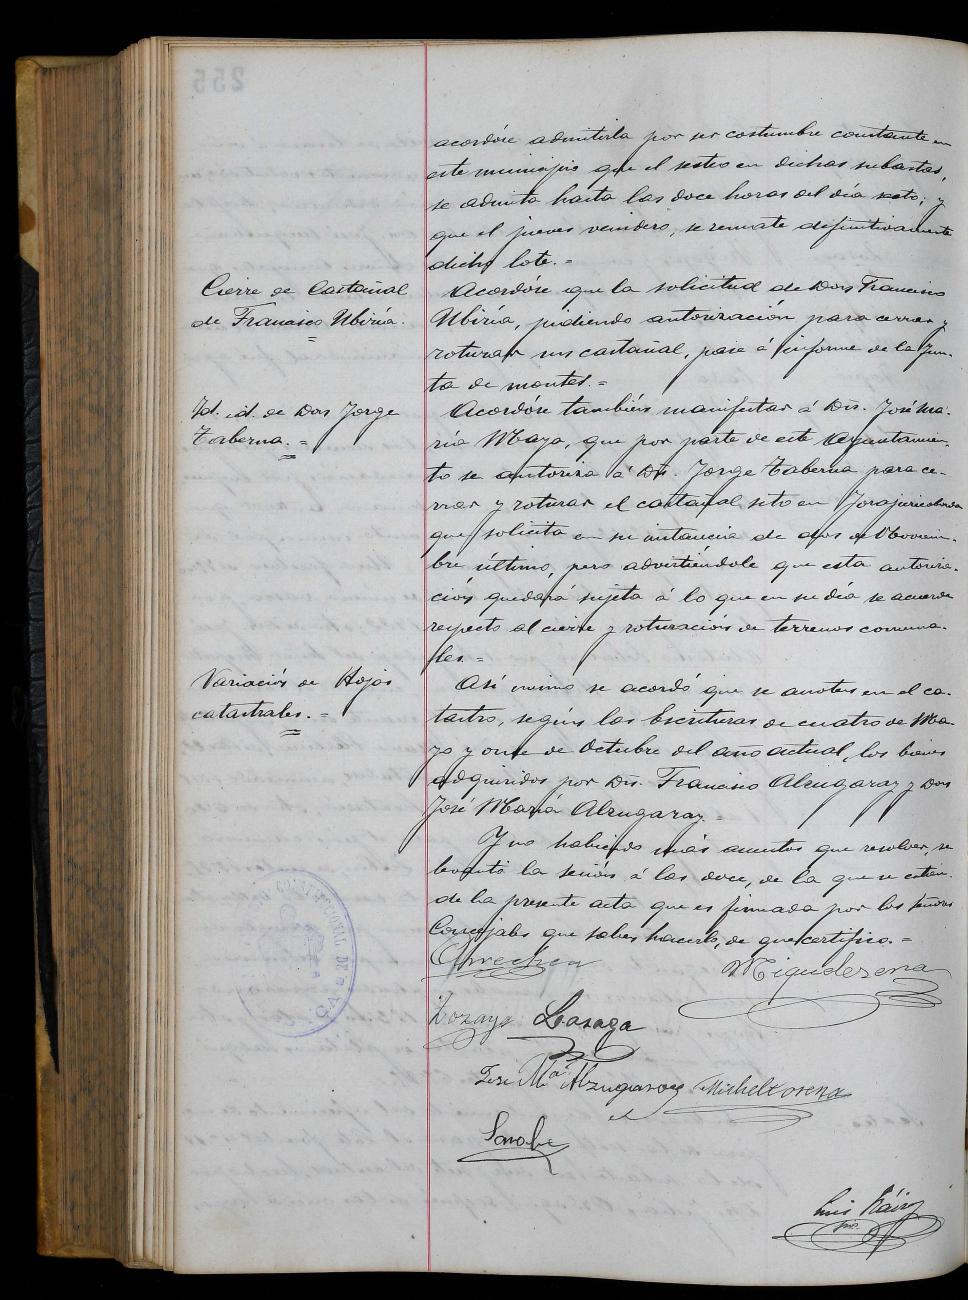 acordóse admitirla por ser costumbre constante en
este municipio que el sesteo en dichas subastas,
se admita hasta las doce horas del día sexto; y
que el jueves venidero, se remate definitivamente
dicho lote.=
Cierre de Castañal
de Francisco Ubiría.
Acordóse que la solicitud de Don Francisco
Ubiría, pidiendo autorización para cerrar y
roturar un castañal, pase á informe de la Jun-
ta de montes.=
Id. id. de Don Jorge
Taberna.=
Acordóse también manifestar á Dn. José Ma-
ría Maya, que por parte de este Ayuntamien-
to se autoriza á Dn. Jorge Taberna para ce-
rrar y roturar el castañal sito en
que solicita en su instancia de dos de Noviem-
bre último, pero advirtiéndole que esta autoriza-
ción quedará sujeta á lo que en su día se acuerde
respecto al cierre y roturación de terrenos comuna-
les.=
Variación de Hojas
catastrales.=
Así mismo se acordó que se anoten en el ca-
tastro, según las Escrituras de cuatro de Ma-
yo y once de Octubre del año actual, los bienes
adquiridos por Dn. Francisco Alzugaray y Don
José María Alzugaray.
Y no habiendo más asuntos que resolver, se
levantó la sesión á las doce, de la que se extien-
de la presente acta que es firmada por los señores
Concejales que saben hacerlo, de que certifico.=
Arrechea
Miguelerena
Zozaya Lasaga
José Ma. Alzugaray Micheltorena
Sarobe
Luis
255
CONSTITUCIONAL DE